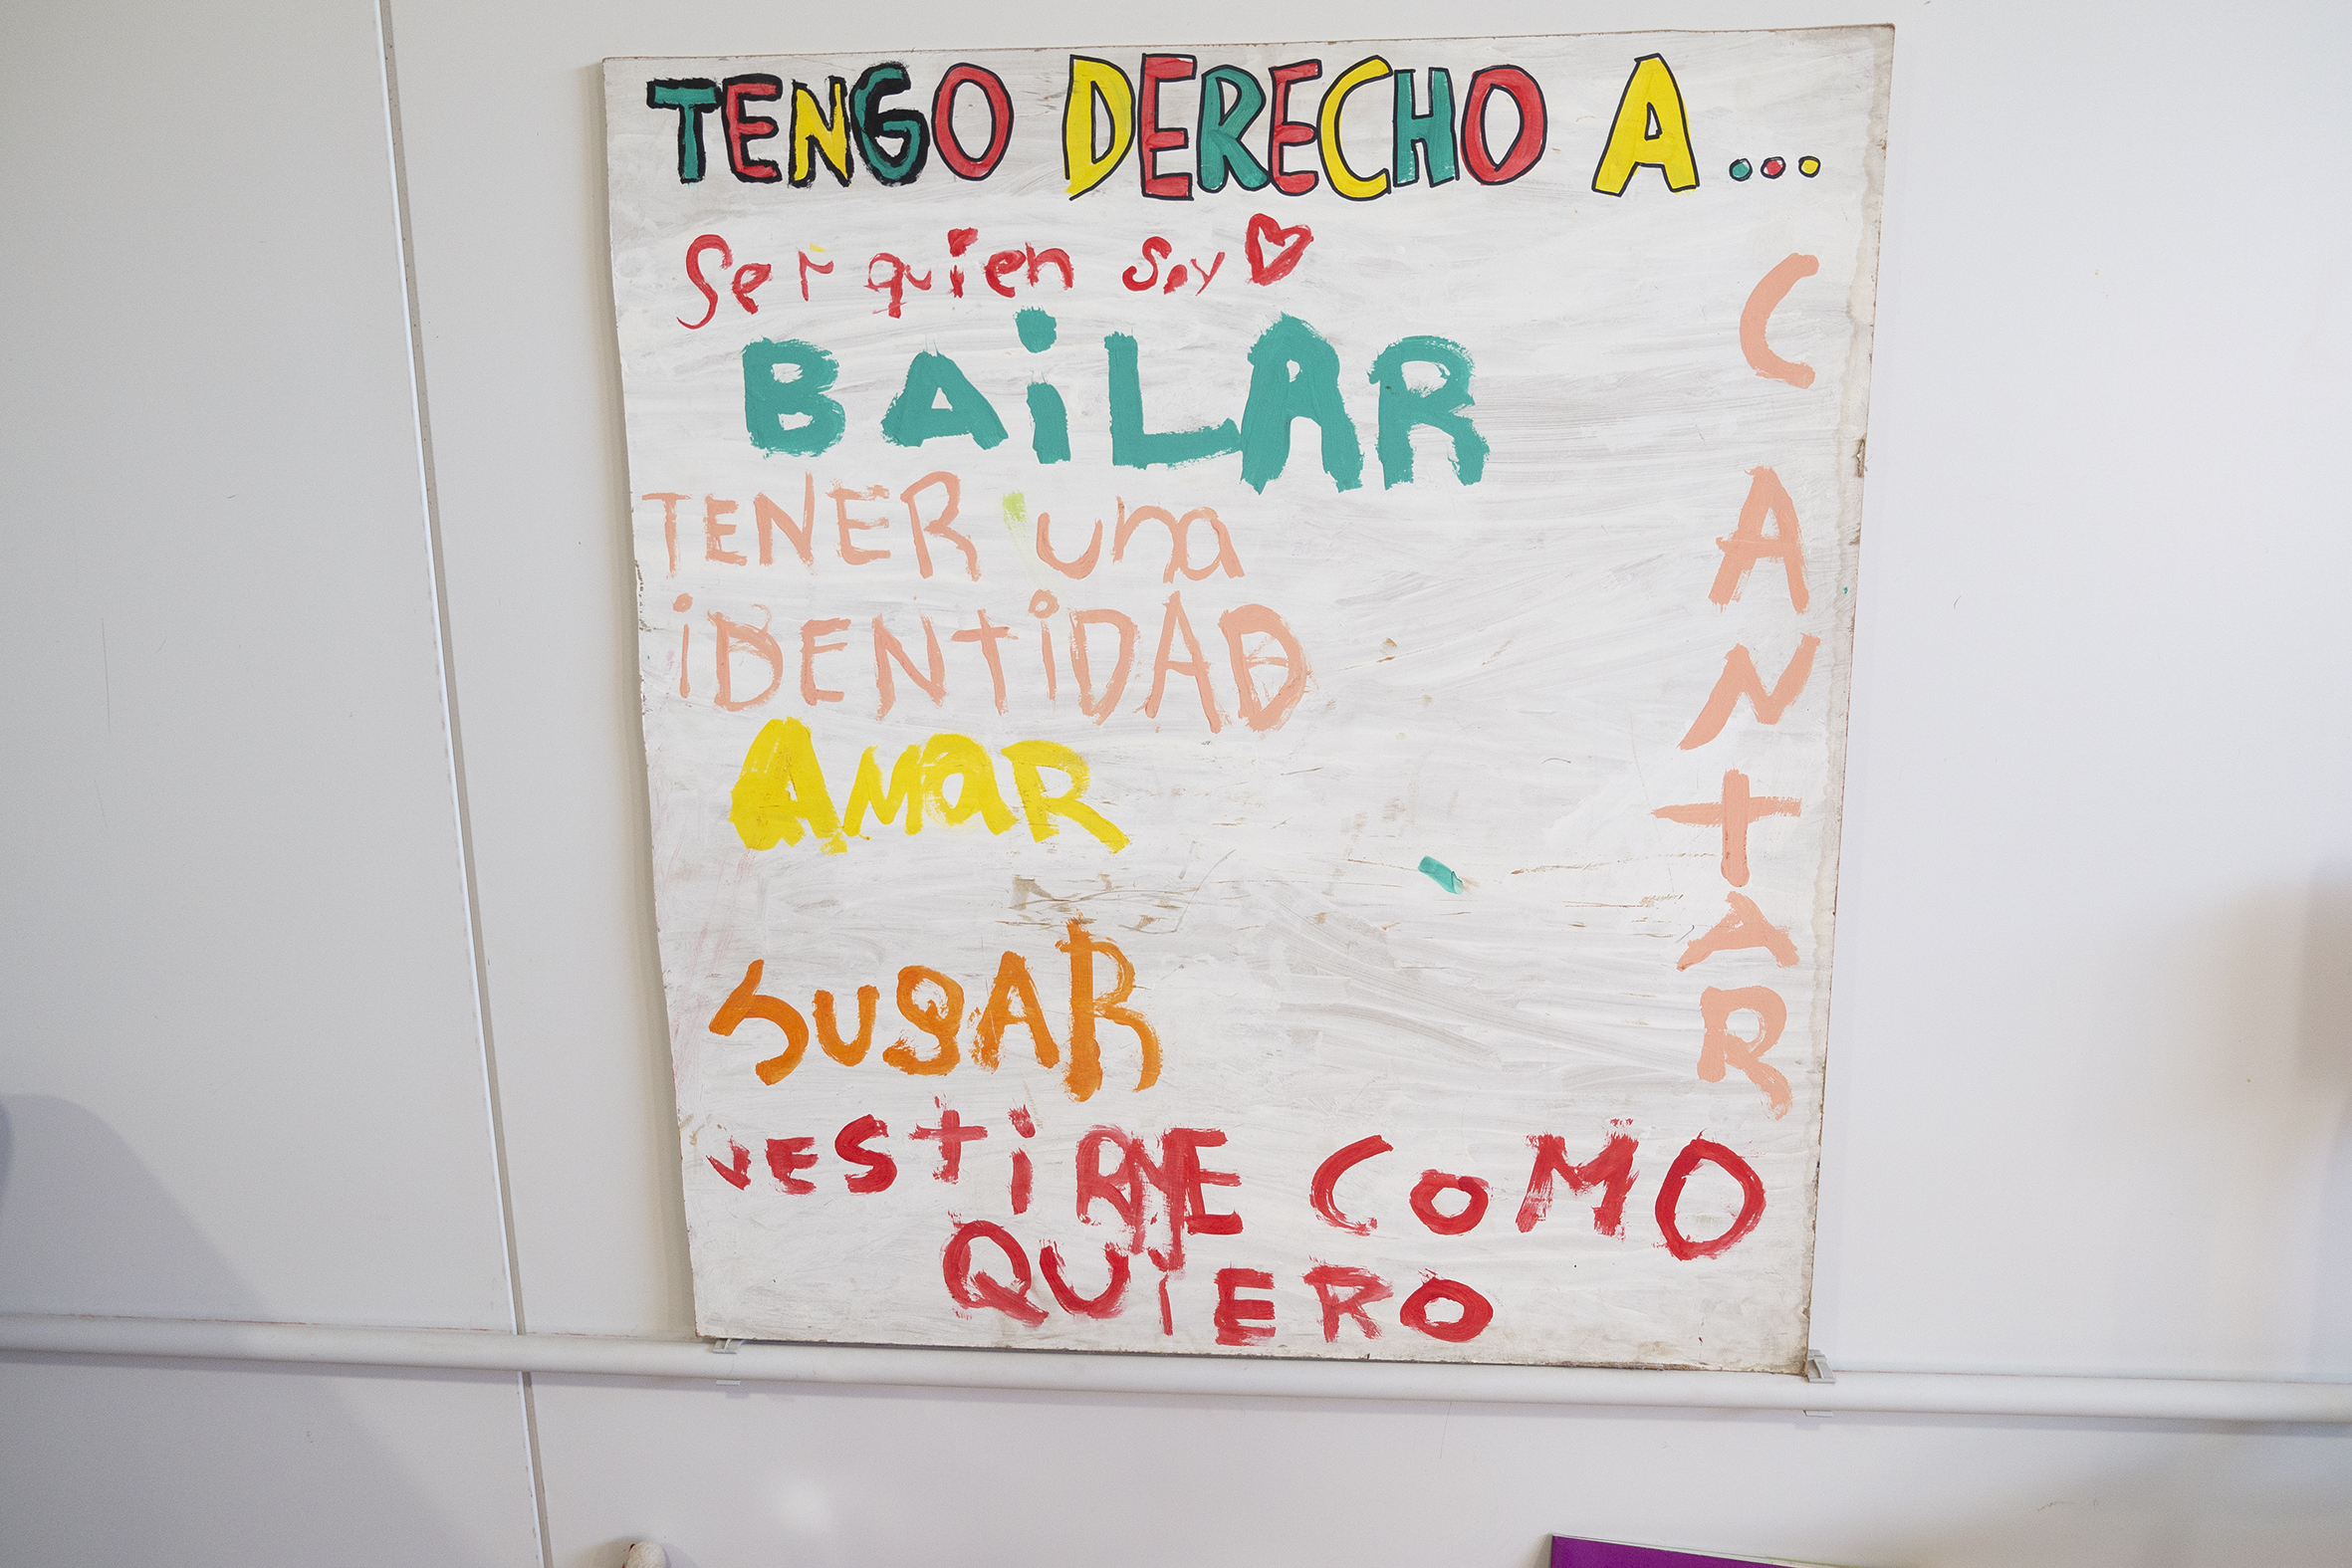 TENGO DERECHO A...
Ser quien soy
BAiLAR
TENER una
iDENTiDAD
AMaR
SUgAR
VESTiRME COMO
QUiERO
CANTAR